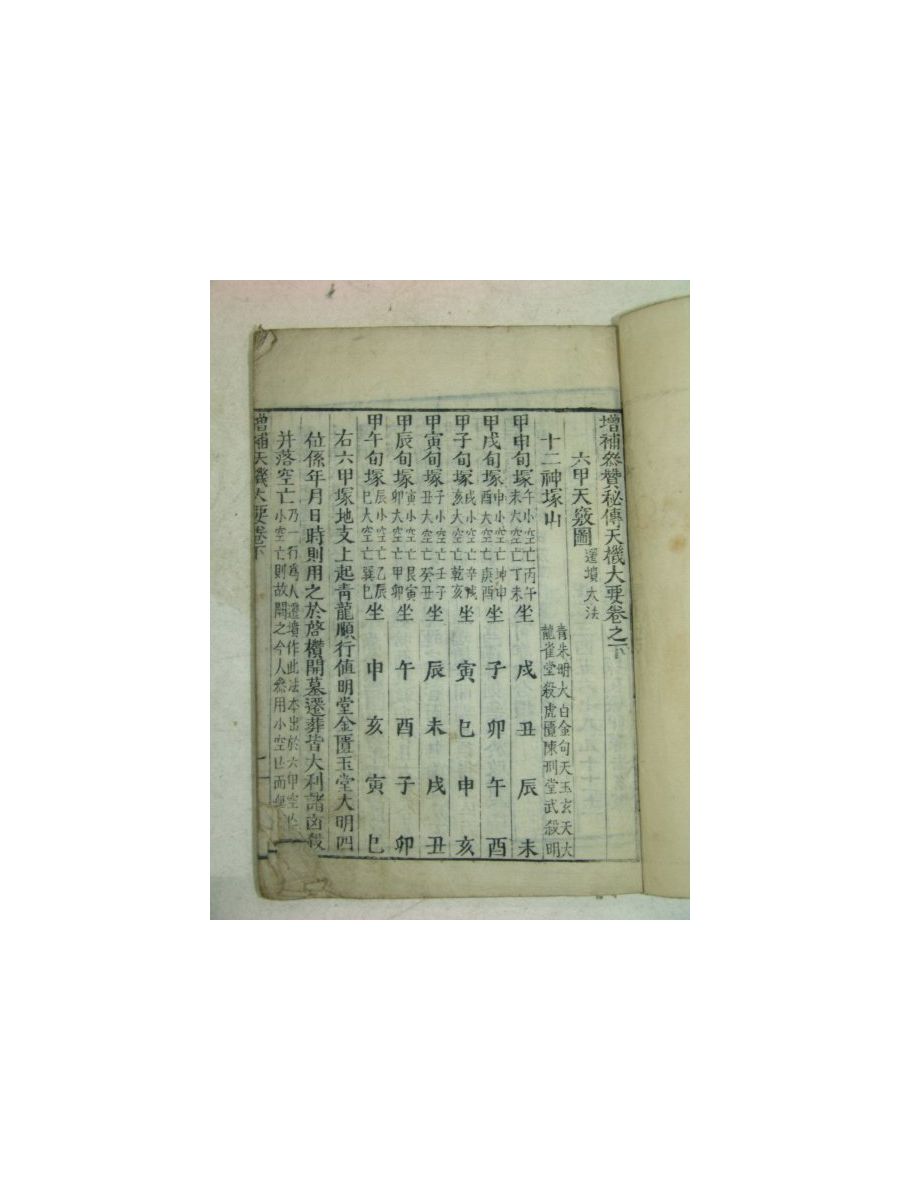 增補參贊秘傳天機大要卷之下
六甲天竅圖 遷墳大法
十二神塚山 青朱明大白金句天玉玄天大 龍雀堂殺虎匱陳刑堂武殺明
甲申旬塚 午小空亡丙午 未大空亡丁未 坐 戌 丑 辰 未
甲戌旬塚 申小空亡坤申 酉大空亡庚酉 坐 子 卯 午 酉
甲子旬塚 戌小空亡辛戌 亥大空亡乾亥 坐 寅 巳 申 亥
甲寅旬塚 子小空亡壬子 丑大空亡癸丑 坐 辰 未 戌 丑
甲辰旬塚 寅小空亡艮寅 卯大空亡甲卯 坐 午 酉 子 卯
甲午旬塚 辰小空亡乙辰 巳大空亡巽巳 坐 申 亥 寅 巳
右六甲塚地支上起青龍順行値明堂金匱玉堂大明四
位係年月日時則用之於啓欑開墓遷葬皆大利諸凶殺
并落空亡 乃一行爲人遷墳作此法本出於六甲空亡 小空亡則故闕之今人
增補天機大要卷下